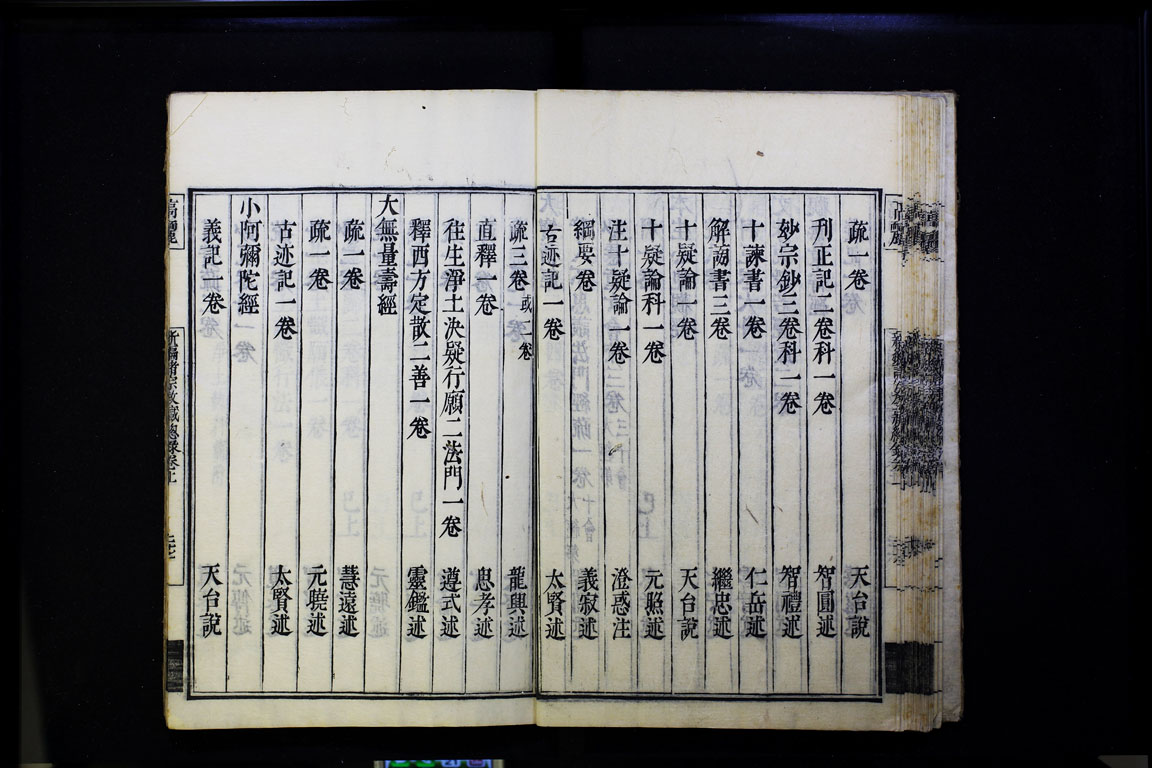 疏一卷 天台說
刋正記二卷科一卷 智圓述
妙宗鈔三卷科一卷 智禮述
十諫書一卷 仁岳述
解謗書三卷 繼忠述
十疑論一卷 天台說
十疑論科一卷 元照述
注十疑論一卷 澄惑注
綱要一卷 義寂述
古迹記一卷 太賢述
疏三卷或一卷 龍興述
直釋一卷 思孝述
往生淨土決疑行願二法門一卷 遵式述
釋西方定散二善一卷 靈鑑述
大無量壽經
疏一卷 慧遠述
疏一卷 元曉述
古迹記一卷 太賢述
小阿彌陀經
義記一卷 天台說
高麗 新編諸宗教藏總錄卷上